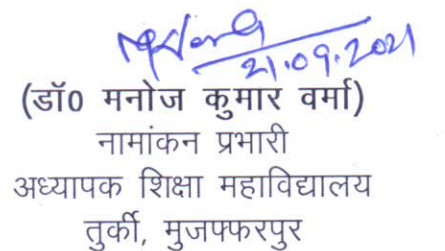 21.09.2021
(डॉ0 मनोज कुमार वर्मा)
नामांकन प्रभारी
अध्यापक शिक्षा महाविद्यालय
तुर्की, मुजफ्फरपुर